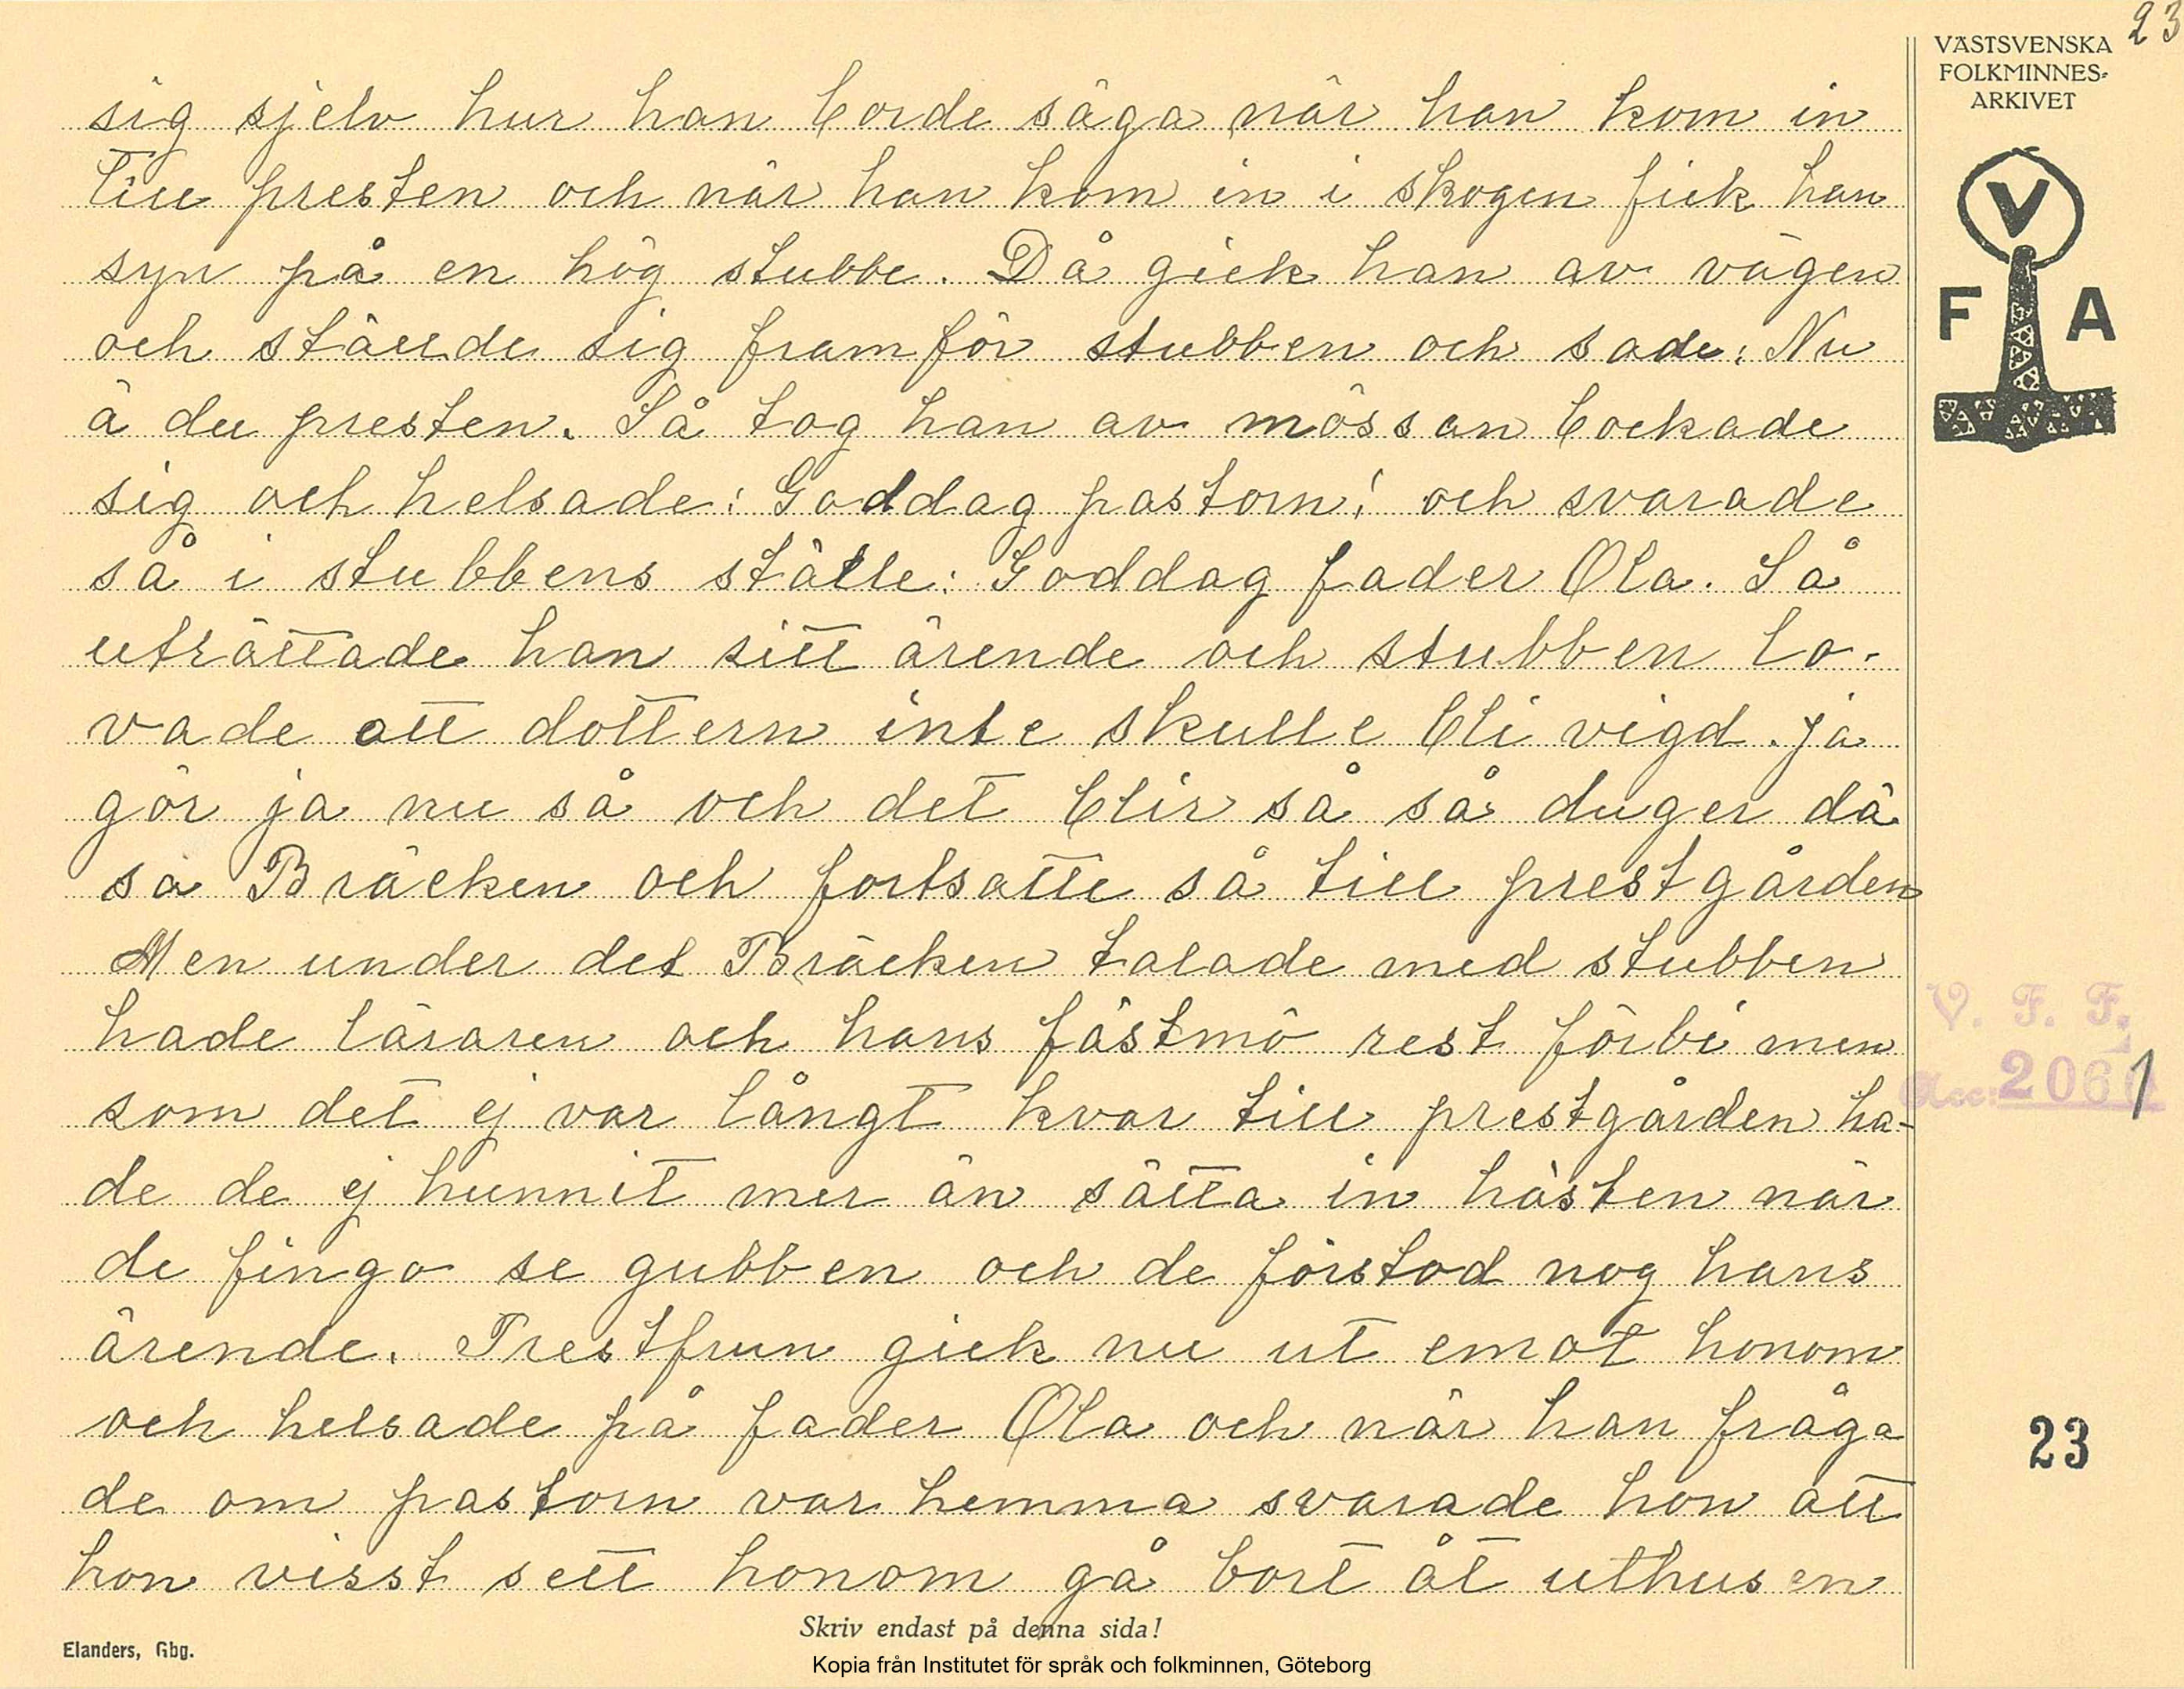 23
VÄSTSVENSKA
FOLKMINNES-
ARKIVET
V
F A
sig sjelv hur han borde säga när han kom in
till presten och när han kom in i skogen fick han
syn på en hög stubbe. Då gick han av vägen
och ställde sig framför stubben och sade: Nu
ä du presten. Så tog han av mössan bockade
sig och helsade: Goddag pastorn! och svarade
så i stubbens ställe: Goddag fader Ola. Så
uträttade han sitt ärende och stubben lo-
vade att dottern inte skulle bli vigd. ja
gör ja nu så och det blir så så duger dä
sa Bräcken och fortsatte så till prestgården
Men under det Bräcken talade med stubben
hade läraren och hans fästmö rest förbi men
som det ej var långt kvar till prestgården ha-
de de ej hunnit mer än sätta in hästen när
de fingo se gubben och de förstod nog hans
ärende. Prestfrun gick nu ut emot honom
och helsade på fader Ola och när han fråga
de om pastorn var hemma svarade hon att
hon visst sett honom gå bort åt uthusen
V. F. F.
Acc: 2061
23
Skriv endast på denna sida!
Elanders, Gbg.
Kopia från Institutet för språk och folkminnen, Göteborg